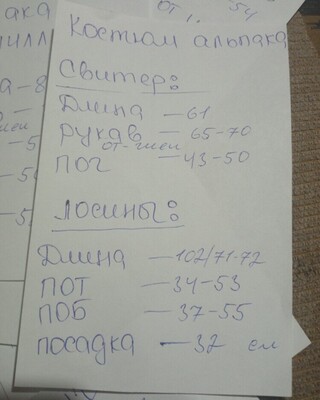 ака
от
54
Костюм альпака
Свитер:
Длина — 61
рукав — 65-70
от шеи
ПОГ — 43-50
Лосины:
Длина — 102/71-72
ПОТ — 34-53
ПОБ — 37-55
посадка — 32 см